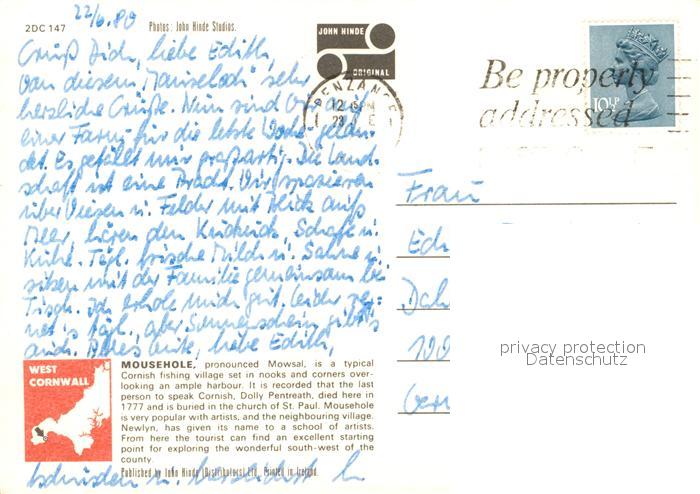 22/6.80
2DC 147
Photos: John Hinde Studios.
JOHN HINDE
ORIGINAL
PENZANCE
12 PM
Be properly
addressed
10½P
Grüß Dich, liebe Edith,
von diesem "Mauseloch" sehr
herzliche Grüße. Nun sind
einer Farm für die letzte Woche gelan-
det. Es gefällt mir großartig. Die Land-
schaft ist eine Pracht. Wir spazieren
über Wiesen u. Felder mit Blick aufs
Meer, hören den Kuckuck, Schafe u.
Kühe. Tägl. frische Milch u. Sahne u.
sitzen mit der Familie gemeinsam bei
Tisch. Ich erhole mich gut. Leider reg-
net's tägl., aber Sonnenschein gibt's
auch. Alles Gute, liebe Edith,
Frau
Edi
Dah
100
privacy protection
Datenschutz
WEST
CORNWALL
MOUSEHOLE, pronounced Mowsal, is a typical
Cornish fishing village set in nooks and corners over-
looking an ample harbour. It is recorded that the last
person to speak Cornish, Dolly Pentreath, died here in
1777 and is buried in the church of St. Paul. Mousehole
is very popular with artists, and the neighbouring village.
Newlyn, has given its name to a school of artists.
From here the tourist can find an excellent starting
point for exploring the wonderful south-west of the
county.
Published by John Hinde (Distributors) Ltd. Printed in Ireland.